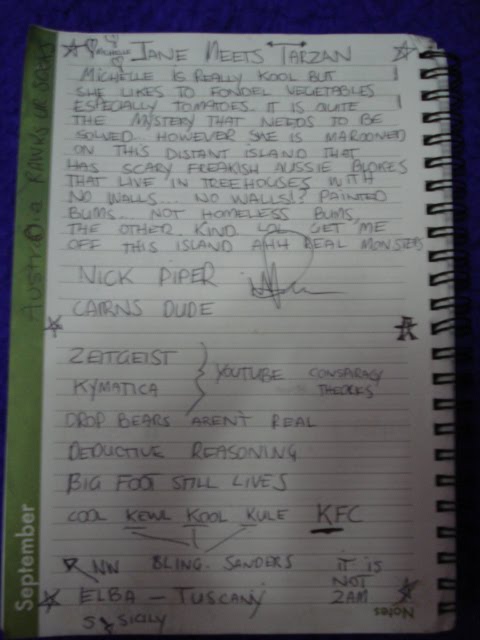 JANE MEETS TARZAN
MICHELLE IS REALLY KOOL BUT
SHE LIKES TO FONDEL VEGETABLES
ESPECIALLY TOMATOES. IT IS QUITE
THE MYSTERY THAT NEEDS TO BE
SOLVED. HOWEVER SHE IS MAROONED
ON THIS DISTANT ISLAND THAT
HAS SCARY FREAKISH AUSSIE BLOKES
THAT LIVE IN TREEHOUSES WITH
NO WALLS... NO WALLS!? PAINTED
BUMS... NOT HOMELESS BUMS,
THE OTHER KIND LOL GET ME
OFF THIS ISLAND AHH REAL MONSTERS
NICK PIPER
CAIRNS DUDE
ZEITGEIST
KYMATICA
YOUTUBE CONSPIRACY
THEORIES
DROP BEARS AREN'T REAL
DEDUCTIVE REASONING
BIG FOOT STILL LIVES
COOL KEWL KOOL KULE KFC
NW BLING. SANDERS
IT IS
NOT
2AM
ELBA - TUSCANY
S SICILY
September
Notes
MICHELLE